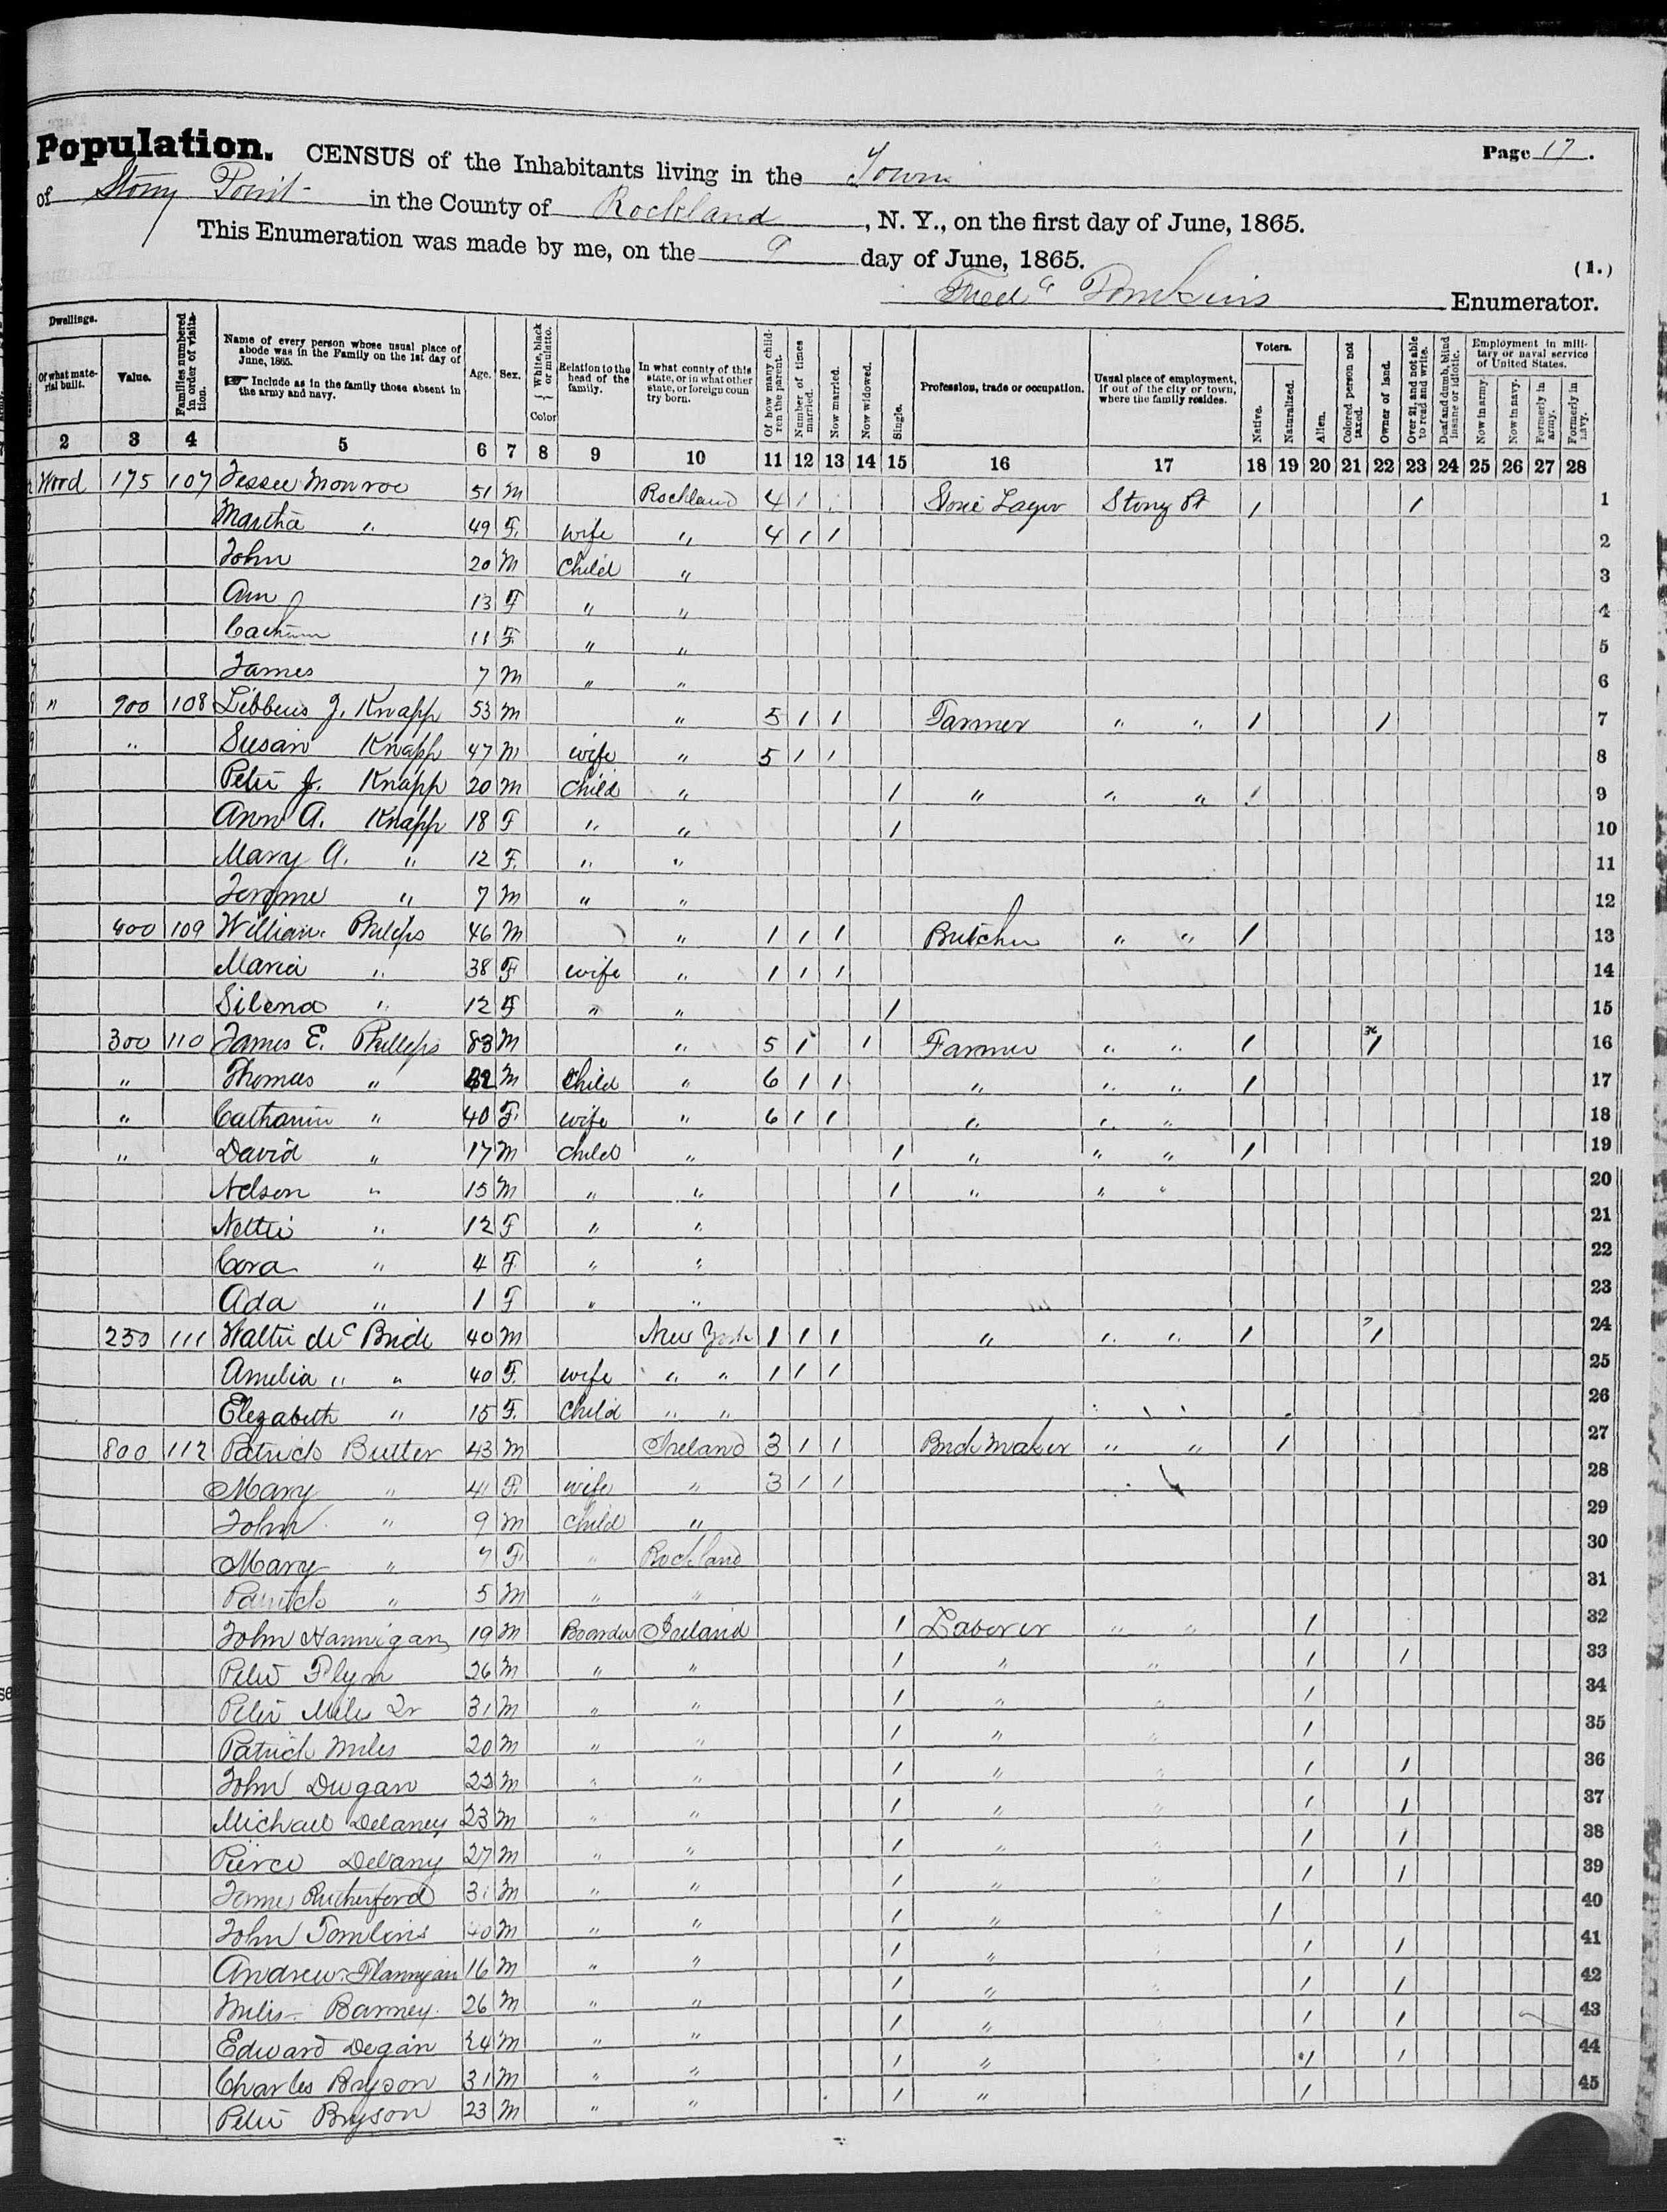 Population. CENSUS of the Inhabitants living in the Town Page 17.
of Stony Point in the County of Rockland, N. Y., on the first day of June, 1865.
This Enumeration was made by me, on the 9 day of June, 1865.
(1.)
Fred Tomkins Enumerator.
Dwellings.
Of what material built.
Value.
Families numbered in order of visitation.
Name of every person whose usual place of abode was in the Family on the 1st day of June, 1865.
☞ Include as in the family those absent in the army and navy.
Age.
Sex.
White, black or mulatto. } Color
Relation to the head of the family.
In what county of this state, or in what other state, or foreign coun try born.
Of how many child- ren the parent.
Number of times married.
Now married.
Now widowed.
Single.
Profession, trade or occupation.
Usual place of employment, if out of the city or town, where the family resides.
Voters.
Native.
Naturalized.
Alien.
Colored person not taxed.
Owner of land.
Over 21, and not able to read and write.
Deaf and dumb, blind insane or idiotic.
Employment in mili- tary or naval service of United States.
Now in army.
Now in navy.
Formerly in army.
Formerly in navy.
2 3 4 5 6 7 8 9 10 11 12 13 14 15 16 17 18 19 20 21 22 23 24 25 26 27 28
Wood 175 107 Jessee Monroe 51 M Rockland 4 1 Stone Layer Stony Pt 1 1 1
Martha " 49 F. wife " 4 1 1 2
John 20 M Child " 3
Ann 13 F " " 4
11 F. " " 5
James 7 M " " 6
" 900 108 Libbeus J. Knapp 53 M " 5 1 1 Farmer " " 1 1 7
" Susan Knapp 47 M wife " 5 1 1 8
Peter J. Knapp 20 M Child " 1 " " " 1 9
Ann A. Knapp 18 F " " 1 10
Mary A. " 12 F. " " 11
Jerome " 7 M " " 12
400 109 William Philips 46 M " 1 1 1 Butcher " " 1 13
Maria " 38 F wife " 1 1 1 14
Silena " 12 F " " 1 15
300 110 James E. Phillips 83 M " 5 1 1 Farmer " " 1 1 16
" Thomas " 42 M Child " 6 1 1 " " " 1 17
" Catharine " 40 F. wife " 6 1 1 " " " 18
" David " 17 M Child " 1 " " " 1 19
Nelson " 15 M " " 1 " " " 20
Nettie " 12 F " " 21
Cora " 4 F " " 22
Ada " 1 F " " 23
250 111 Walter Mc Bride 40 M New York 1 1 1 " " " 1 1 24
Amelia " " 40 F. wife " " 1 1 1 25
Elezabeth " 15 F. Child " " 26
800 112 Patrick Butter 43 M Ireland 3 1 1 Brick Maker " " 1 27
Mary " 41 F. wife " 3 1 1 28
John " 9 M Child " 29
Mary " 7 F. " Rockland 30
Patrick " 5 M " " 31
John Hannigan 19 M Boarder Ireland 1 Laborer " " 1 32
Peter Flynn 26 M " " 1 " " 1 1 33
Peter Miles Jr 31 M " " 1 " " 1 34
Patrick Miles 20 M " " 1 " " 1 35
John Dugan 23 M " " 1 " " 1 1 36
Michael Delaney 23 M " " 1 " " 1 1 37
Pierce Delany 27 M " " 1 " " 1 1 38
James Rutherford 31 M " " 1 " " 1 1 39
John Tomlins 40 M " " 1 " " 1 40
Andrew Flannigan 16 M " " 1 " 1 1 41
Miles Barney 26 M " " 1 " 1 1 42
Edward Degan 24 M " " 1 " 1 1 43
Charles Bryson 31 M " " 1 " 1 1 44
Peter Bryson 23 M " " 1 " 1 45